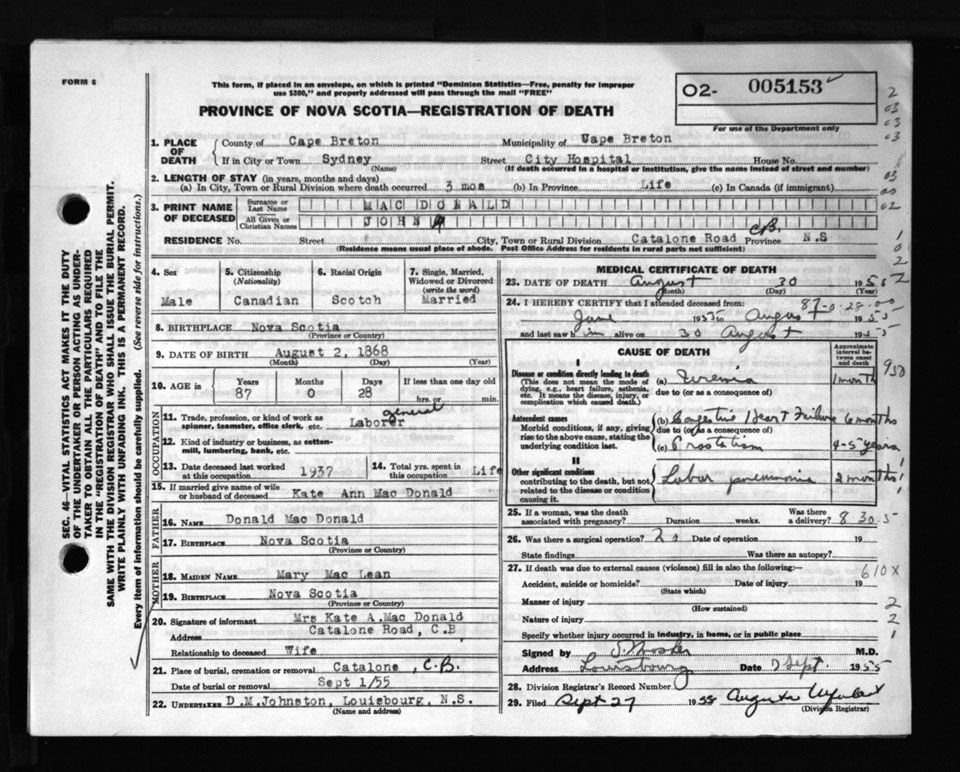 FORM 6
This form, if placed in an envelope, on which is printed "Dominion Statistics—Free, penalty for improper
use $300," and properly addressed will pass through the mail "FREE"
PROVINCE OF NOVA SCOTIA—REGISTRATION OF DEATH
O2- 005153
For use of the Department only
SEC. 46—VITAL STATISTICS ACT MAKES IT THE DUTY
OF THE UNDERTAKER OR PERSON ACTING AS UNDER-
TAKER TO OBTAIN ALL THE PARTICULARS REQUIRED
IN THE "REGISTRATION OF DEATH" AND TO FILE THE
SAME WITH THE DIVISION REGISTRAR WHO SHALL ISSUE THE BURIAL PERMIT.
WRITE PLAINLY WITH UNFADING INK. THIS IS A PERMANENT RECORD.
Every item of information should be carefully supplied. (See reverse side for instructions.)
1. PLACE OF DEATH County of Cape Breton Municipality of Cape Breton
If in City or Town Sydney Street City Hospital House No.
(Name) (If death occurred in a hospital or institution, give the name instead of street and number)
2. LENGTH OF STAY (in years, months and days)
(a) In City, Town or Rural Division where death occurred 3 mos (b) In Province Life (c) In Canada (if immigrant)
3. PRINT NAME OF DECEASED Surname or Last Name MAC DONALD
All Given or Christian Names JOHN A
RESIDENCE No. Street City, Town or Rural Division Catalone Road C.B. Province N.S
(Residence means usual place of abode. Post Office Address for residents in rural parts not sufficient)
4. Sex 5. Citizenship (Nationality) 6. Racial Origin 7. Single, Married, Widowed or Divorced (write the word)
Male Canadian Scotch Married
8. BIRTHPLACE Nova Scotia
(Province or Country)
9. DATE OF BIRTH August 2, 1868
(Month) (Day) (Year)
10. AGE in Years Months Days If less than one day old
87 0 28 hrs. or min.
OCCUPATION
11. Trade, profession, or kind of work as spinner, teamster, office clerk, etc. general Laborer
12. Kind of industry or business, as cotton-mill, lumbering, bank, etc.
13. Date deceased last worked at this occupation 1937 14. Total yrs. spent in this occupation Life
15. If married give name of wife or husband of deceased Kate Ann Mac Donald
FATHER
16. NAME Donald Mac Donald
17. BIRTHPLACE Nova Scotia
(Province or Country)
MOTHER
18. MAIDEN NAME Mary Mac Lean
19. BIRTHPLACE Nova Scotia
(Province or Country)
20. Signature of informant Mrs Kate A.Mac Donald
Address Catalone Road, C.B
Relationship to deceased Wife
21. Place of burial, cremation or removal Catalone, C.B.
Date of burial or removal Sept 1/55
22. UNDERTAKER D.M.Johnston, Louisbourg, N.S.
(Name and address)
MEDICAL CERTIFICATE OF DEATH
23. DATE OF DEATH August 30 1955
(Month) (Day) (Year)
87-0-28-00
24. I HEREBY CERTIFY that I attended deceased from:
June 1955 to August 1955
and last saw him alive on 30 August 1955
CAUSE OF DEATH
Approximate interval between onset and death
I
Disease or condition directly leading to death (a) Uremia 1 month
(This does not mean the mode of dying, e.g., heart failure, asthenia, etc. It means the disease, injury, or complication which caused death.)
due to (or as a consequence of)
Antecedent causes (b) Congestive Heart Failure 6 months
Morbid conditions, if any, giving rise to the above cause, stating the underlying condition last.
due to (or as a consequence of)
(c) Prostatism 4-5 years
II
Other significant conditions contributing to the death, but not related to the disease or condition causing it. Lobar pneumonia 2 months
25. If a woman, was the death associated with pregnancy? Duration weeks. Was there a delivery? 830.5
26. Was there a surgical operation? no Date of operation 19
State findings Was there an autopsy?
27. If death was due to external causes (violence) fill in also the following:—
610X
Accident, suicide or homicide? Date of injury 19
(State which)
Manner of injury
(How sustained)
Nature of injury
Specify whether injury occurred in industry, in home, or in public place
Signed by M.D.
Address Louisbourg Date 7 Sept. 1955
28. Division Registrar's Record Number
29. Filed Sept 27 1955
(Division Registrar)